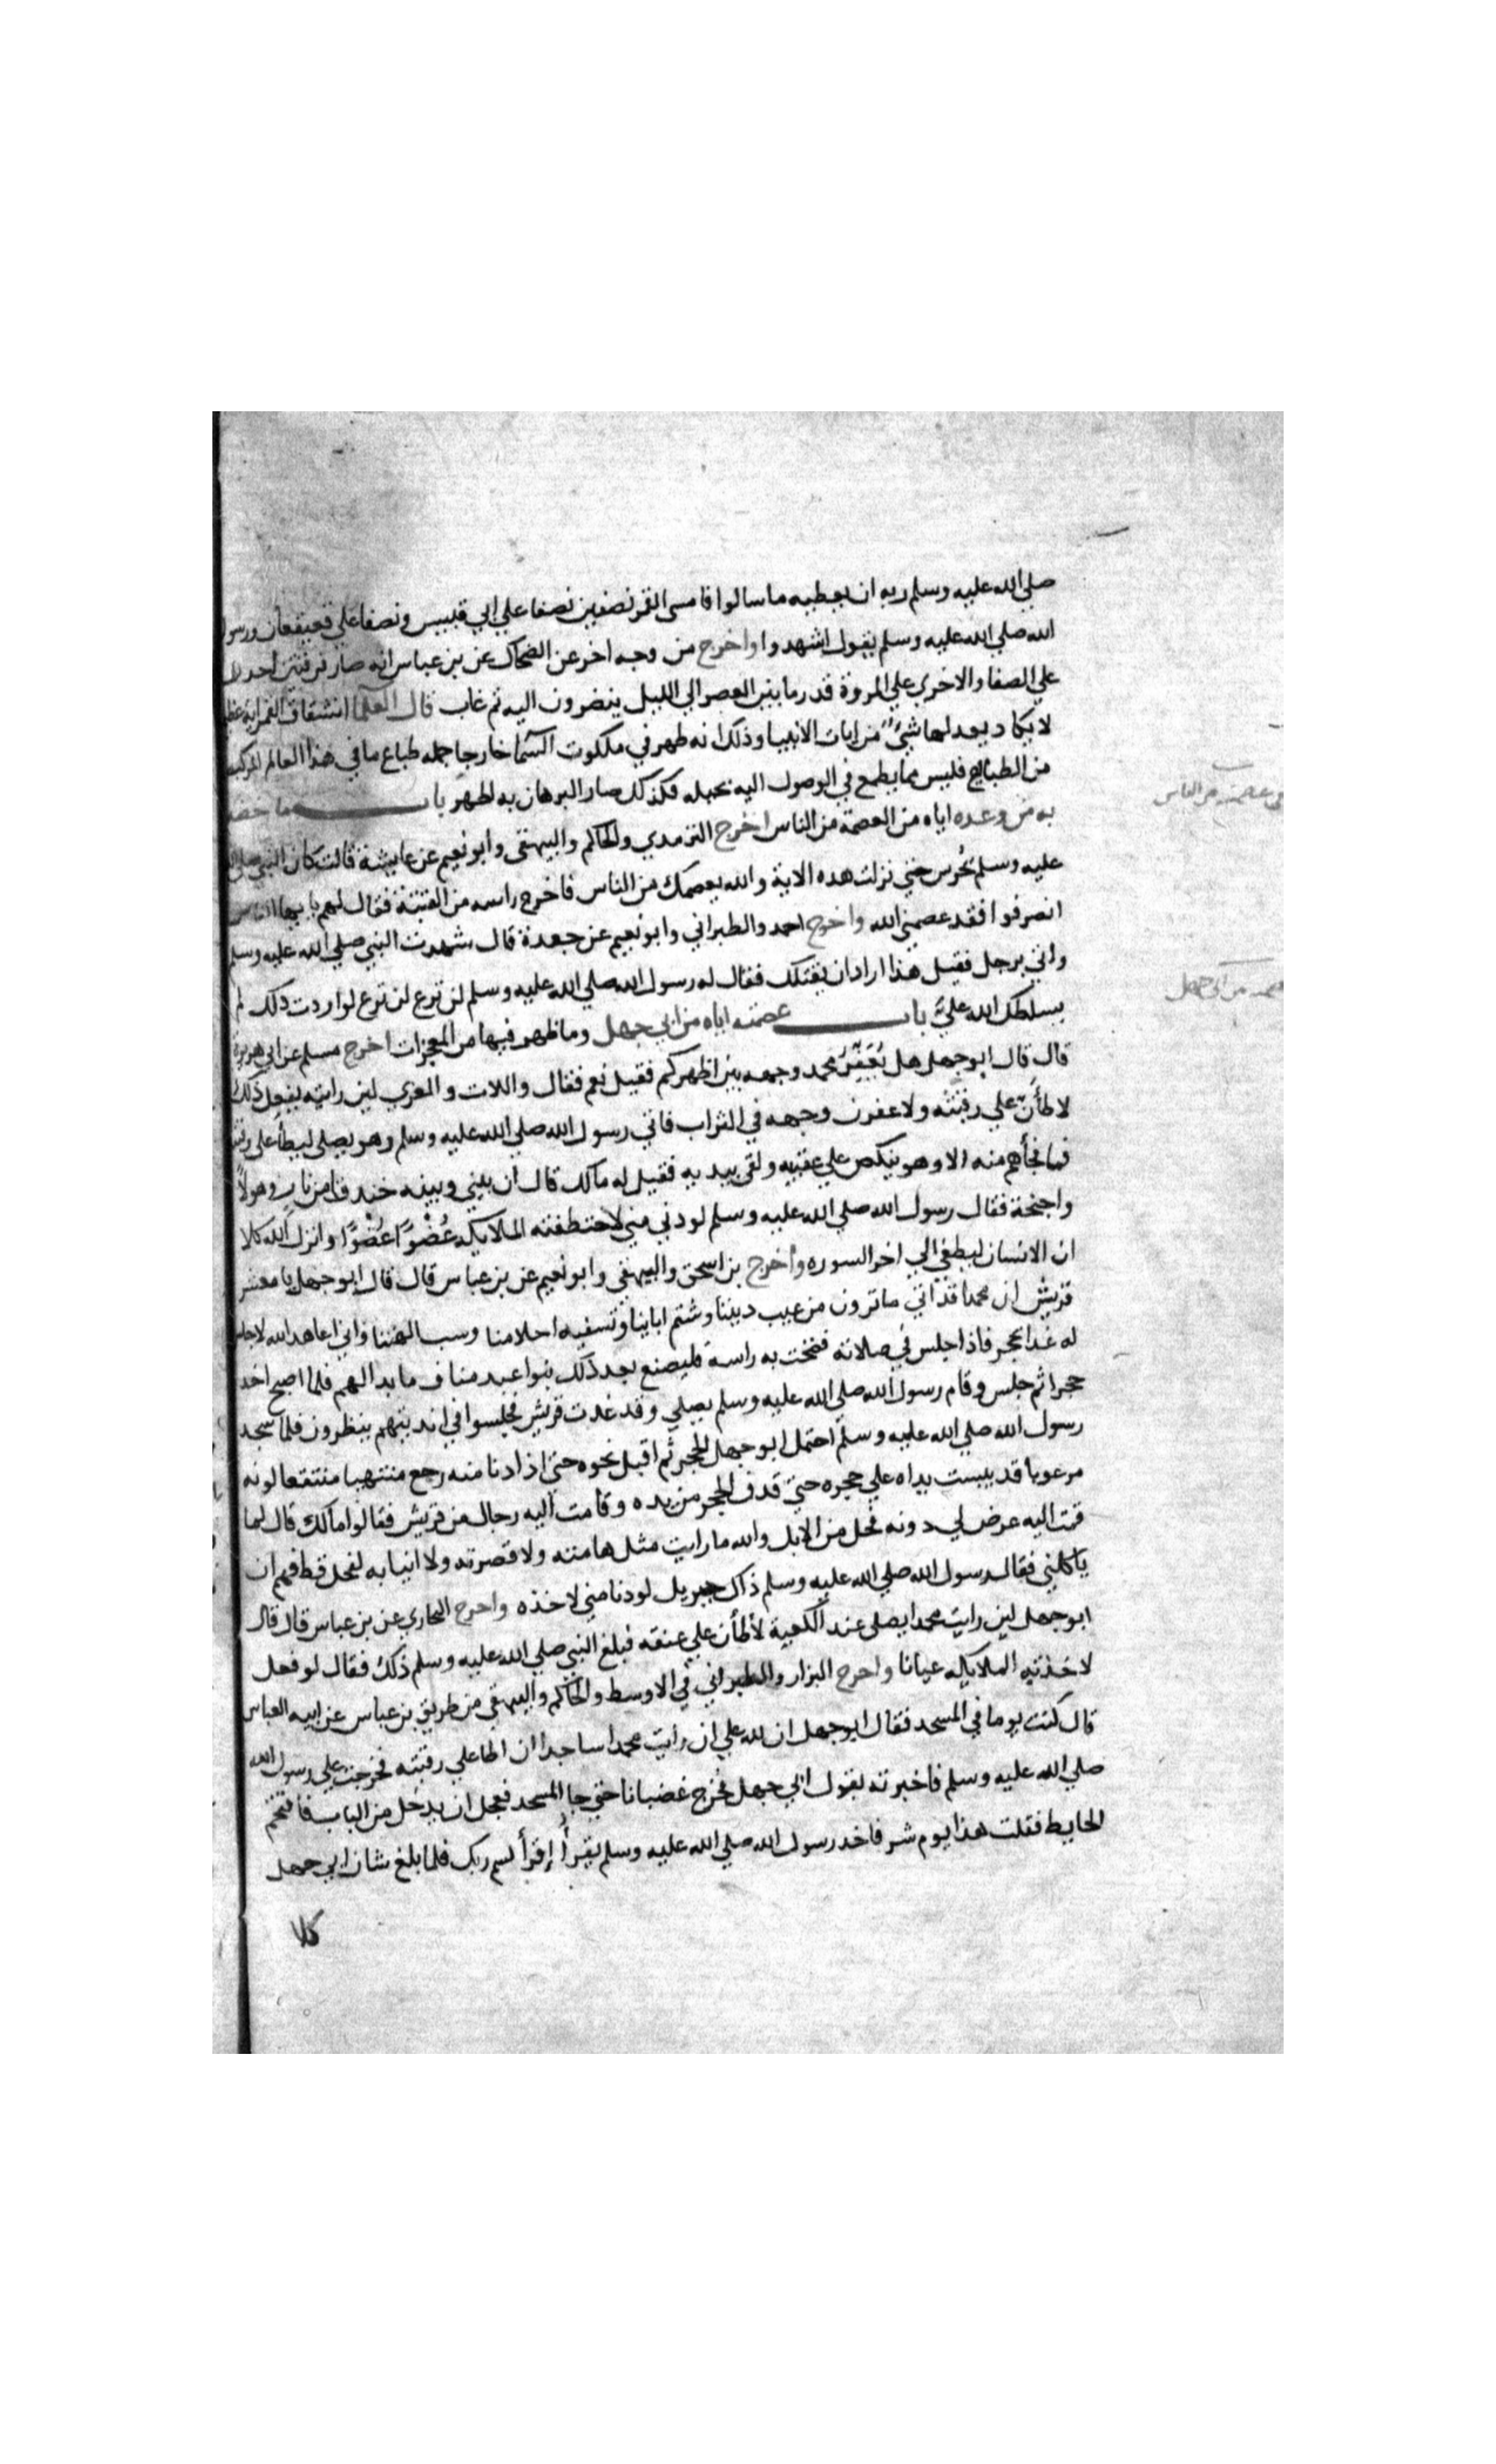 صلي الله عليه وسلم ربه ان يعطيه ما سالوا فامسى القمر نصفين نصفا علي ابي قبيس ونصفا علي قعيقعان ورسول
الله صلي الله عليه وسلم يقول اشهدوا واخرج من وجه اخر عن الضحاك عن بن عباس انه صار فرقتين احداهما
علي الصفا والاخري علي المروة قدر ما بين العصر الي الليل ينضرون اليه ثم غاب قال العلما انشقاق القمر اية عظيمة
لا يكاد يعدلها شيء من ايات الانبيا وذلك انه ظهر في ملكوت السما خارجا جمله طباع ما في هذا العالم المركب
من الطبايع فليس مما يطمع في الوصول اليه بحيله فكذلك صار البرهان به اظهر باب ما خصه
به من وعده اياه من العصمة من الناس اخرج الترمدي والحاكم والبيهقي وابو نعيم عن عايشة قالت كان النبي صلي الله
عليه وسلم يُحرس حتي نزلت هده الاية والله يعصمك من الناس فاخرج راسه من القبة فقال لهم يا ايها الناس
انصرفوا فقد عصمني الله واخرج احمد والطبراني وابو نعيم عن جعدة قال شهدت النبي صلي الله عليه وسلم
واتي برجل فقيل هذا اراد ان يقتلك فقال له رسول الله صلي الله عليه وسلم لن ترع لن ترع لو اردت دلك لم
يسلطك الله عليّ باب عصمته اياه من ابي جهل وما ظهر فيها من المعجزات اخرج مسلم عن ابي هريرة
قال قال ابو جهل هل يُعَفِّرُ محمد وجهه بين اظهركم فقيل نعم فقال واللات والعزي لين رايته يفعل ذلك
لاطأنّ علي رقبته ولاعفرن وجهه في التراب فاتي رسول الله صلي الله عليه وسلم وهو يصلي ليطأ علي رقبته
فما فجأهم منه الا وهو ينكص علي عقبيه ولقي بيديه فقيل له مالك قال ان بيني وبينه خندقا من نار وهولاً
واجنحة فقال رسول الله صلي الله عليه وسلم لو دني مني لاختطفته الملايكه عُضْوًا عُضْوًا وانزل الله كلا
ان الانسان ليطغي الي اخر السوره واخرج بن اسحق والبيهقي وابو نعيم عن بن عباس قال قال ابو جهل يا معشر
قريش ان محمدا قد اتي ما ترون من عيب ديننا وشتم اباينا وتسفيه احلامنا وسب الهتنا واني اعاهد الله لاجلسن
له غدا بحجر فاذا جلس في صلاته فضخت به راسه فليصنع بعد ذلك بنوا عبد مناف ما بدا لهم فلما اصبح اخد
حجرا ثم جلس وقام رسول الله صلي الله عليه وسلم يصلي وقد غدت قريش فجلسوا في انديتهم ينظرون فلما سجد
رسول الله صلي الله عليه وسلم احتمل ابو جهل الحجر ثم اقبل نحوه حتي اذا دنا منه رجع منتهبا منتقعا لونه
مرعوبا قد يبست يداه علي حجره حتي قدف الحجر من يده وقامت اليه رجال من قريش فقالوا مالك قال لما
قمت اليه عرض لي دونه فحل من الابل والله ما رايت مثل هامته ولا قصرته ولا انيابه لفحل قط فهم ان
ياكلني فقال رسول الله صلي الله عليه وسلم ذاك جبريل لو دنا مني لاخذه واحرج البخاري عن بن عباس قال قال
ابو جهل لين رايت محمدا يصلي عند الكعبة لأطأن علي عنقه فبلغ النبي صلي الله عليه وسلم ذلك فقال لو فعل
لاخذته الملايكه عيانا واحرج البزار والطبراني في الاوسط والحاكم والبيهقي من طريق بن عباس عن ابيه العباس
قال كنت يوما في المسجد فقال ابو جهل ان لله علي ان رايت محمدا ساجدا ان اطا علي رقبته فخرجت علي رسول الله
صلي الله عليه وسلم فاخبرته بقول ابي جهل فخرج غضبانا حتي جا المسجد فعجل ان يدخل من الباب فاقتحم
الحايط فقلت هذا يوم شر فاخد رسول الله صلي الله عليه وسلم يقرأ إقرأ باسم ربك فلما بلغ شان ابي جهل
كلا
عصمته من الناس
عصمته من ابي جهل